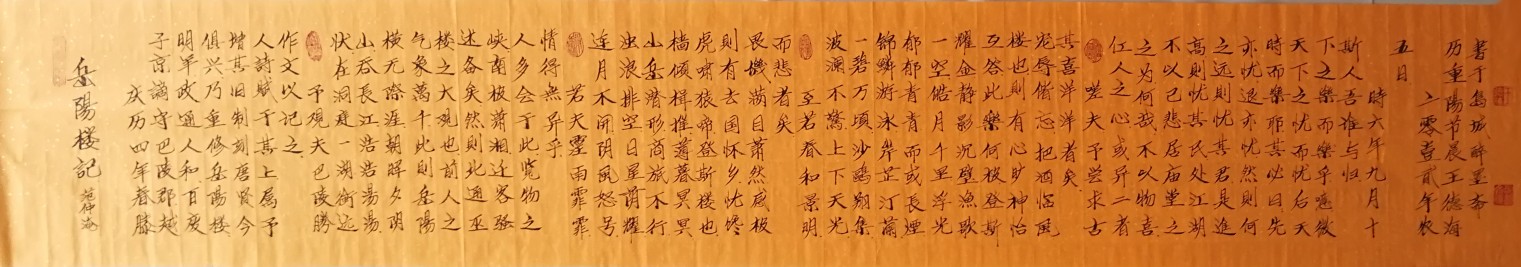 岳陽楼記
范仲淹
庆历四年春滕
子京謫守巴陵郡越
明年政通人和百废
俱兴乃重修岳陽楼
增其旧制刻唐賢今
人詩賦于其上属予
作文以記之
予观夫巴陵勝
状在洞庭一湖衔远
山吞長江浩浩湯湯
横无際涯朝暉夕阴
气象萬千此則岳陽
楼之大观也前人之
述备矣然則北通巫
峡南极瀟湘迁客骚
人多会于此览物之
情得無异乎
若夫霪雨霏霏
连月不开阴風怒号
浊浪排空日星隐耀
山岳潜形商旅不行
樯倾楫摧薄暮冥冥
虎啸猿啼登斯楼也
則有去国怀乡忧谗
畏譏满目萧然感极
而悲者矣
至若春和景明
波澜不驚上下天光
一碧万頃沙鷗翔集
锦鳞游泳岸芷汀蘭
郁郁青青而或長煙
一空皓月千里浮光
耀金静影沉璧漁歌
互答此樂何极登斯
楼也則有心旷神怡
宠辱偕忘把酒临風
其喜洋洋者矣
嗟夫予尝求古
仁人之心或异二者
之为何哉不以物喜
不以己悲居庙堂之
高則忧其民处江湖
之远則忧其君是進
亦忧退亦忧然則何
時而樂耶其必曰先
天下之忧而忧后天
下之樂而樂乎噫微
斯人吾谁与归
時六年九月十
五日
二零壹貳年农
历重陽节晨王德海
書于岛城醉墨斋